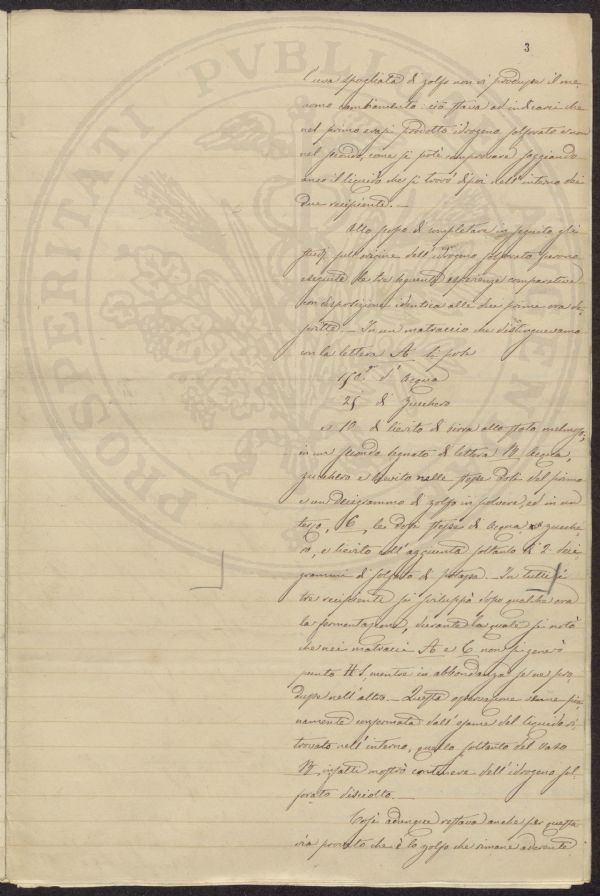 3
l'uva spogliata di zolfo non si produsse il me-
nomo cambiamento: ciò stava ad indicarci che
nel primo erasi prodotto idrogeno solforato e non
nel secondo, come si potè comprovare saggiando
anco il liquido che si trovò dipoi nell'interno dei
due recipienti. —
Allo scopo di completare in seguito gli
studj sull'origine dell'idrogeno solforato furono
eseguite le tre seguenti esperienze comparative
con disposizione identica alle due prime ora de-
scritte — In un matraccio che distingueremo
con la lettera A si pose
150 gr d'Acqua
25 di Zucchero
e 10 di lievito di birra allo stato melmoso;
in un secondo segnato di lettera B Acqua,
zucchero e lievito nelle stesse dosi del primo
e un decigrammo di zolfo in polvere, ed in un
terzo, C, le dosi stesse di Acqua, zucche-
ro, e lievito coll'aggiunta soltanto di 2 deci-
grammi di solfato di potassa. In tutti i
tre recipienti si sviluppò dopo qualche ora
la fermentazione, durante la quale si notò
che nei matracci A e C non si generò
punto HS, mentre in abbondanza se ne pro-
dusse nell'altro. — Questa osservazione venne pie-
namente confermata dall'esame del liquido ri-
trovato nell'interno, quello soltanto del vaso
B infatti mostrò contenere dell'idrogeno sol-
forato disciolto. —
Così adunque restava anche per questa
via provato che è lo zolfo che rimane aderente
PROSPERITATI PVBLICAE